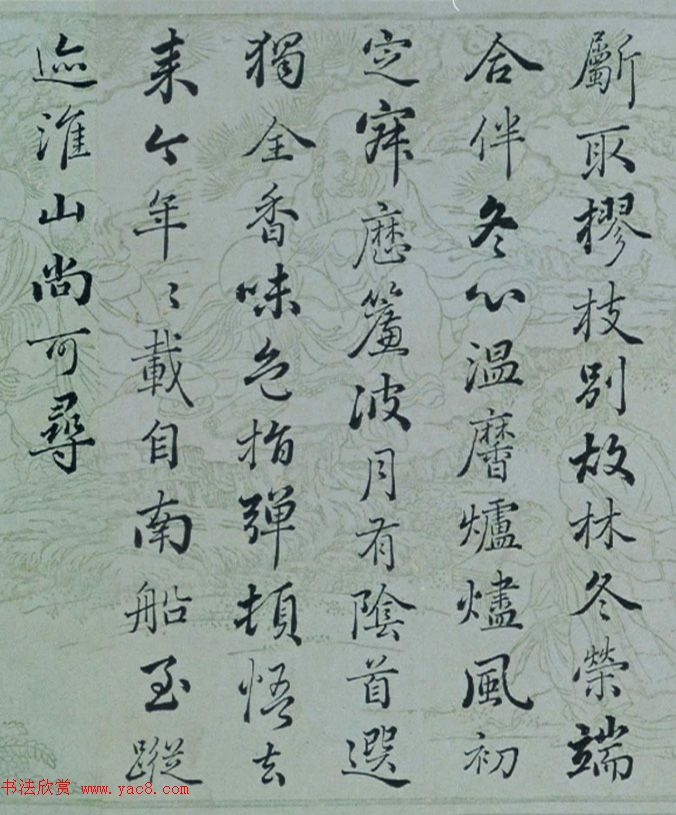 斸取樛枝别故林冬榮端
合伴冬心温黁爐燼風初
定寂歷簾波月有陰首選
獨全香味色指彈頓悟去
来今年〻載自南船至蹤
迹淮山尚可尋
书法欣赏 www.yac8.com